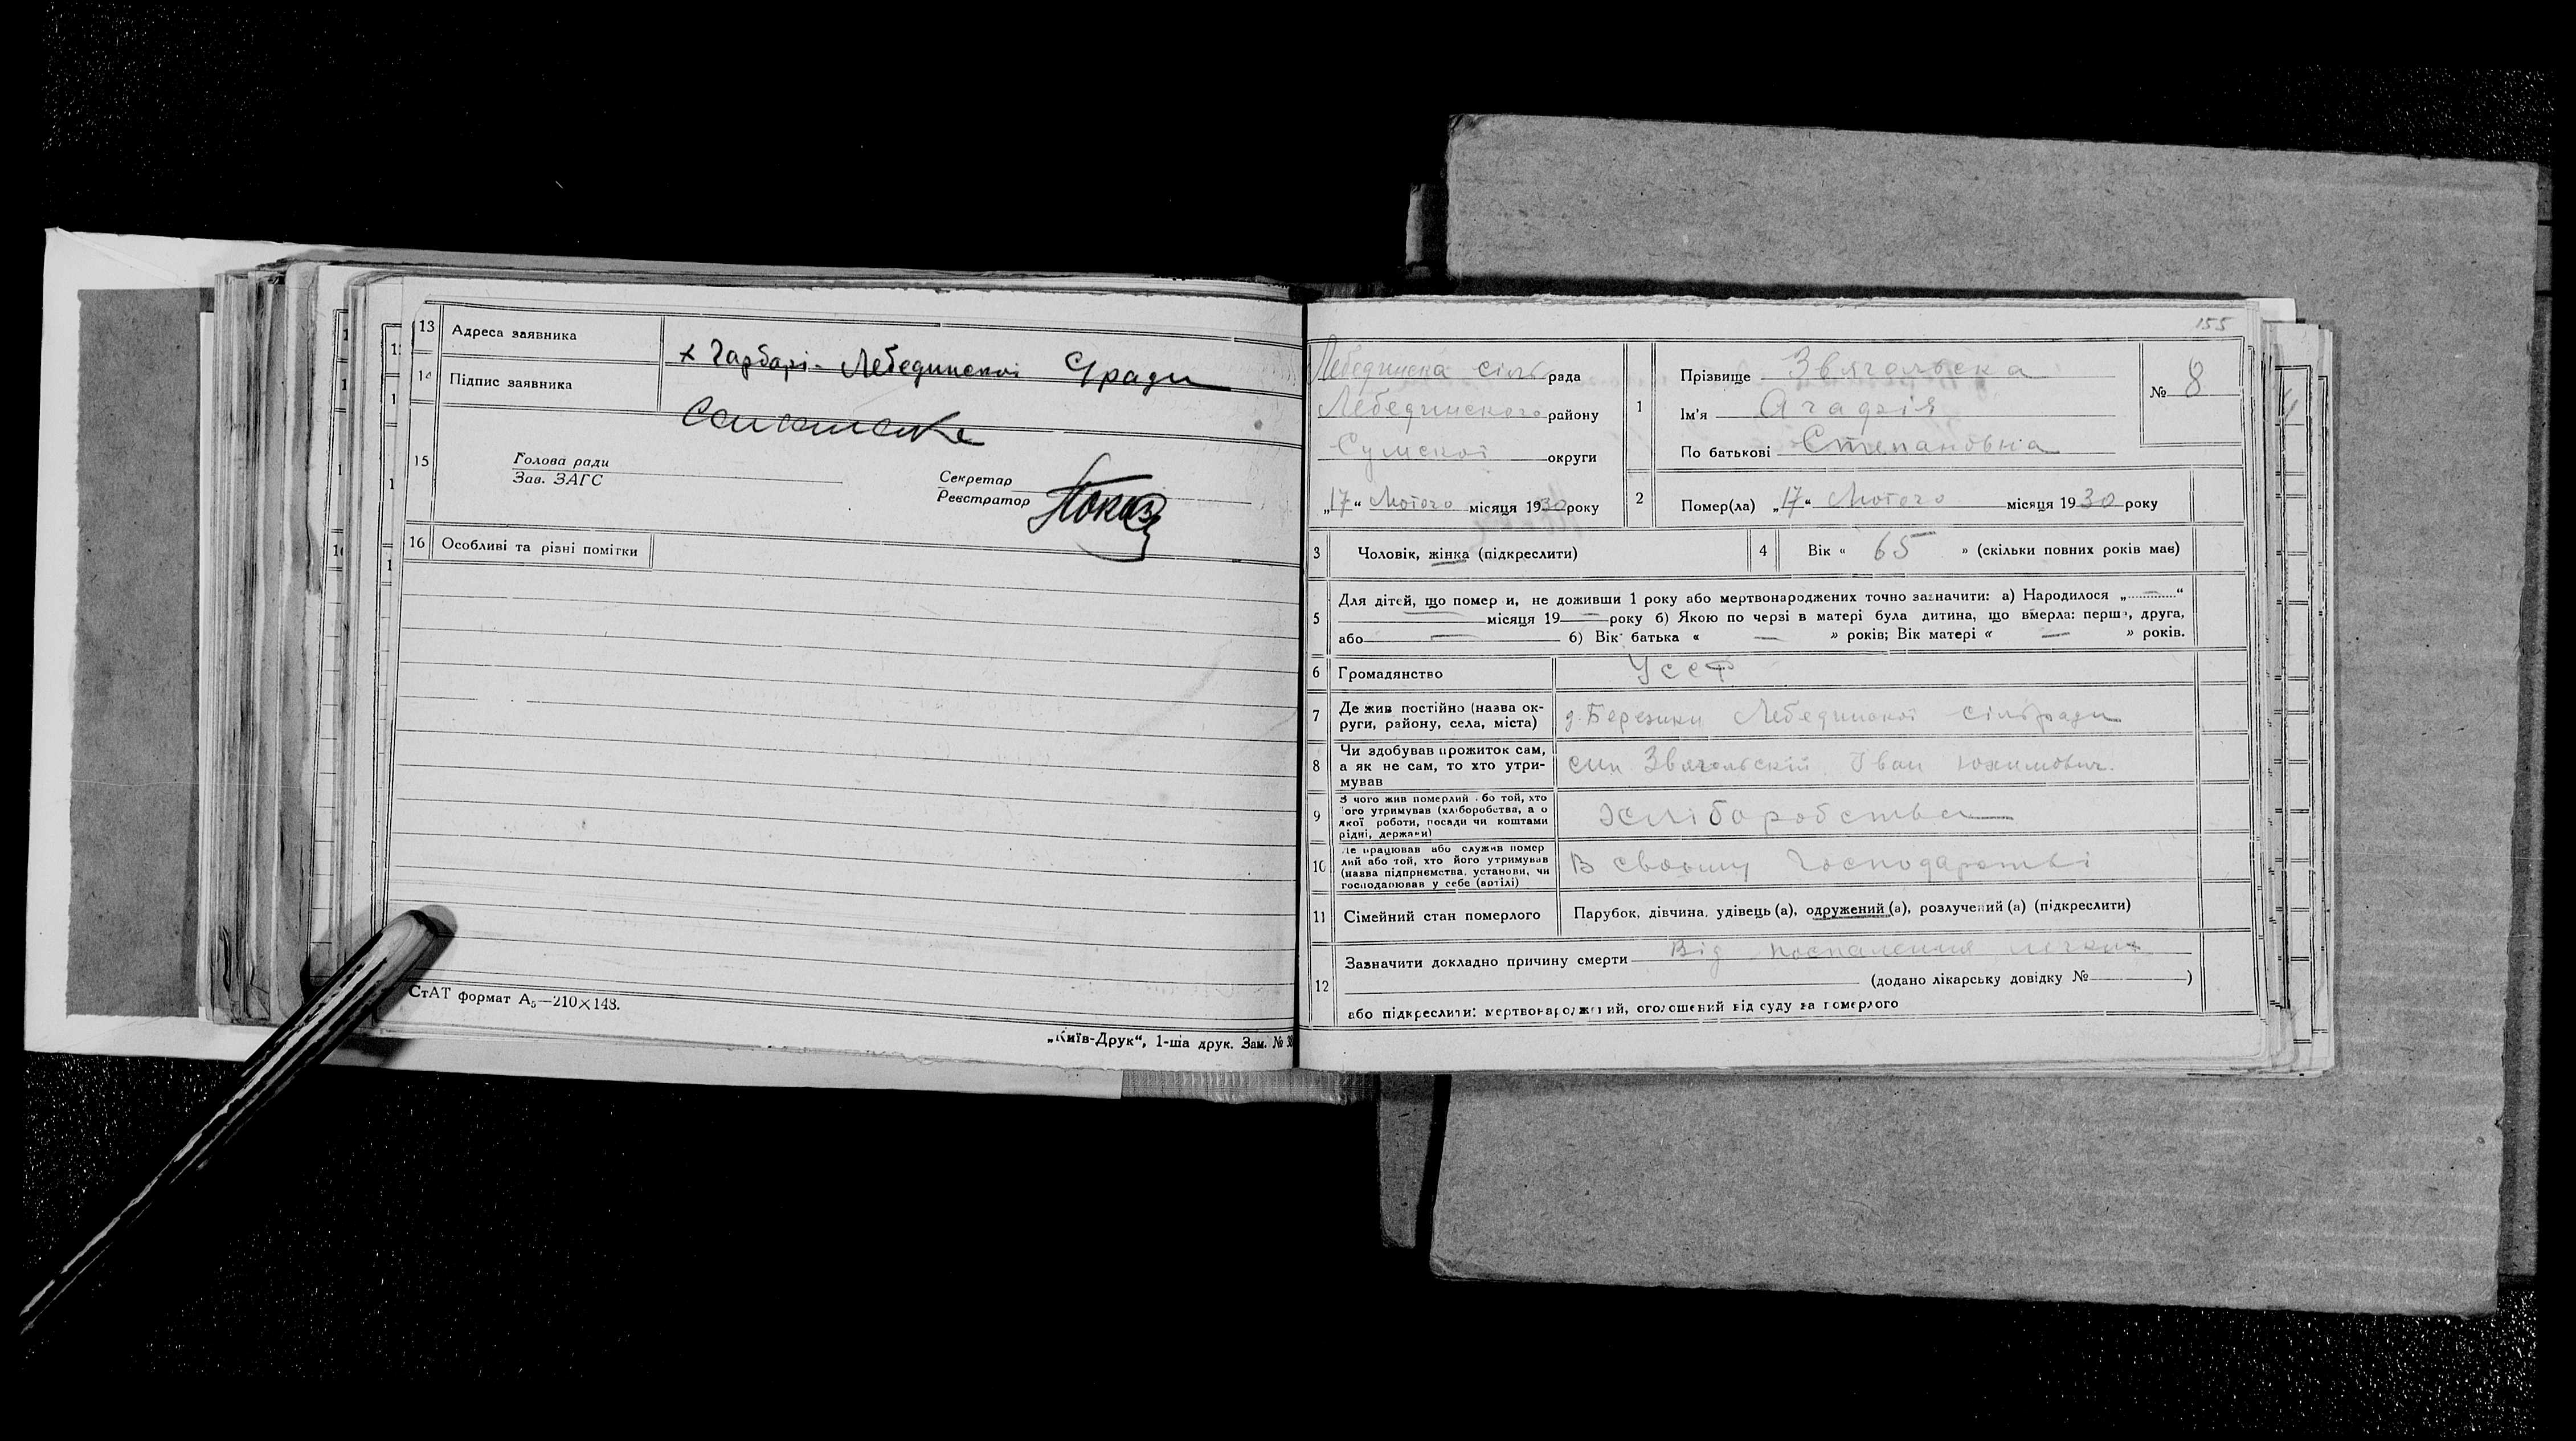 13 Адреса заявника х Гарбарі - Лебединскоі С/ради
14 Підпис заявника
15
Голова ради
Зав. ЗАГС
Секретар
Реєстратор
16 Особливі та різні помітки
СтАТ формат А5—210×148.
„Київ-Друк“, 1-ша друк. Зам. № 38
155
Лебединска сіль рада
Лебединского району
Сумскоі округи
„17“ Лютого місяця 1930 року
1 Прізвище Звягольска
Ім'я Агафія
По батькові Степановна
№ 8
2 Помер(ла) „17“ Лютого місяця 1930 року
3 Чоловік, жінка (підкреслити)
4 Вік « 65 » (скільки повних років має)
5 Для дітей, що помер и, не доживши 1 року або мертвонароджених точно зазначити: а) Народилося „ — “
— місяця 19 — року б) Якою по черзі в матері була дитина, що вмерла: перша, друга,
або — б) Вік батька « — » років; Вік матері « — » років.
6 Громадянство УССР
7 Де жив постійно (назва ок-
руги, району, села, міста) д. Березики Лебединскоі сільради
8 Чи здобував прожиток сам,
а як не сам, то хто утри-
мував син Звягольскій Іван Юхимович.
9 З чого жив померлий або той, хто
його утримував (хліборобства, а о
якої роботи, посади чи коштами
рідні, держави) Хліборобства
10 Де працював або служив помер
лий або той, хто його утримував
(назва підприємства, установи, чи
господарював у себе (артілі) В своєму господарстві
11 Сімейний стан померлого Парубок, дівчина, удівець (а), одружений (а), розлучений (а) (підкреслити)
12 Зазначити докладно причину смерти Від воспаления легких
(додано лікарську довідку № )
або підкреслити: мертвонароджений, оголошений від суду за померлого